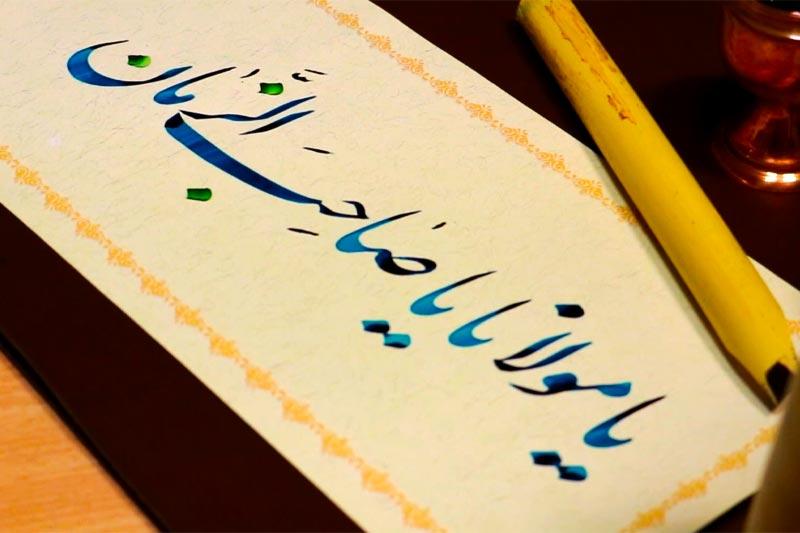 یا مولانا یا صاحِبَ الزَّمان